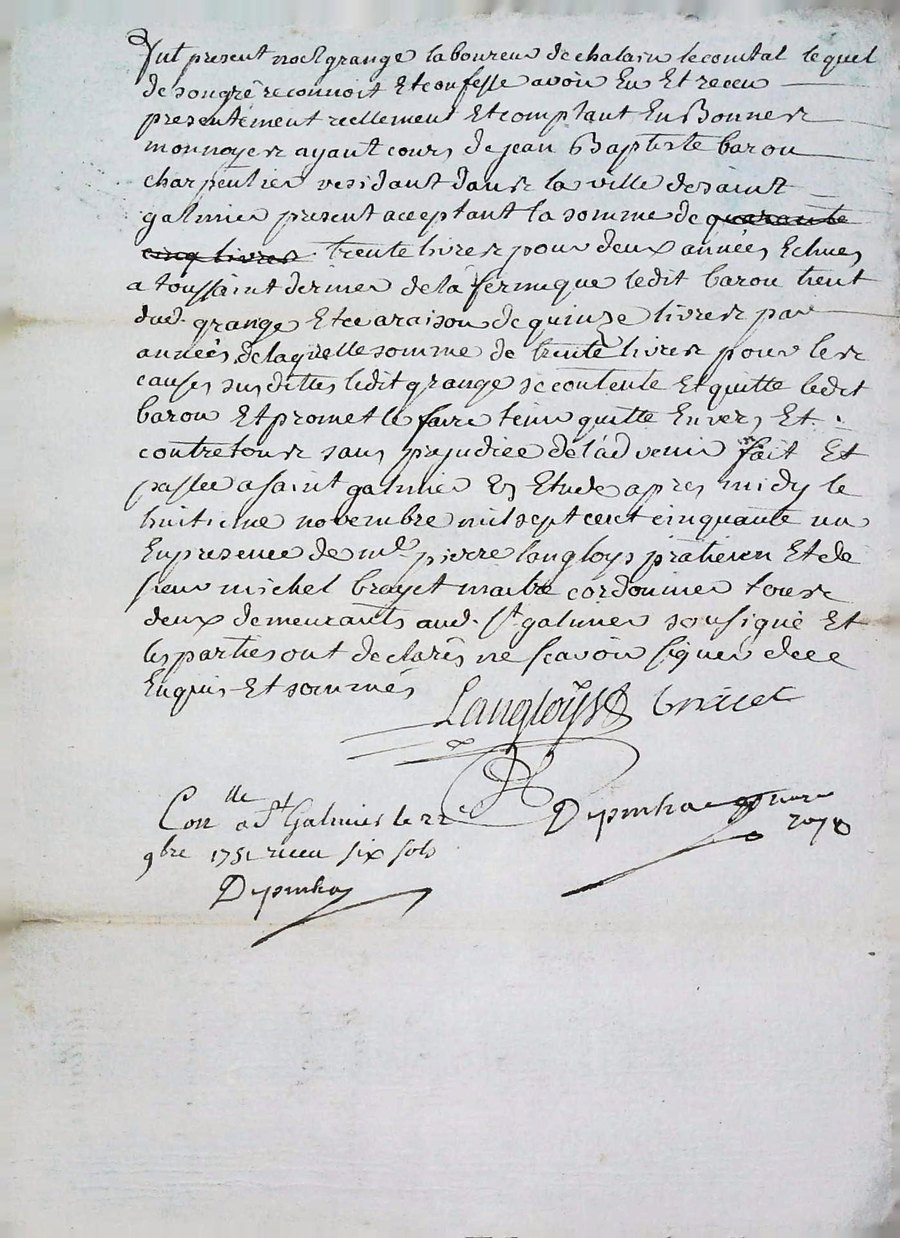 fut present noel grange laboureur de chalain lecomtal lequel
de son gré reconnoit Et confesse avoir Eu Et receu
presentement reellement Et comptant En Bonnes
monnoyes ayant cours de jean Baptiste barou
charpentier residant dans la ville de saint
galmier present acceptant la somme de quarante
cinq livres trente livres pour deux années Echues
a toussaint dernier de la ferme que ledit barou tient
dud. grange Et ce a raison de quinze livres par
années, de laquelle somme de trente livres pour les
causes susdittes ledit grange se contente Et quitte ledit
barou Et promet le faire tenir quitte Envers Et
contre tous sans prejudice de l'advenir fait Et
passée a saint galmier Es Etude apres midy le
huitieme novembre mil sept cent cinquante un
En presence de me pierre langloys praticien Et de
sieur michel brayet maitre cordonnier tous
deux demeurants aud. st galmier soussigné Et
les parties ont declarés ne scavoir signer de ce
Enquis Et sommés
Langloys brayet
Conlle a St Galmier le 22e
notaire
royal
9bre 1751 receu six sols